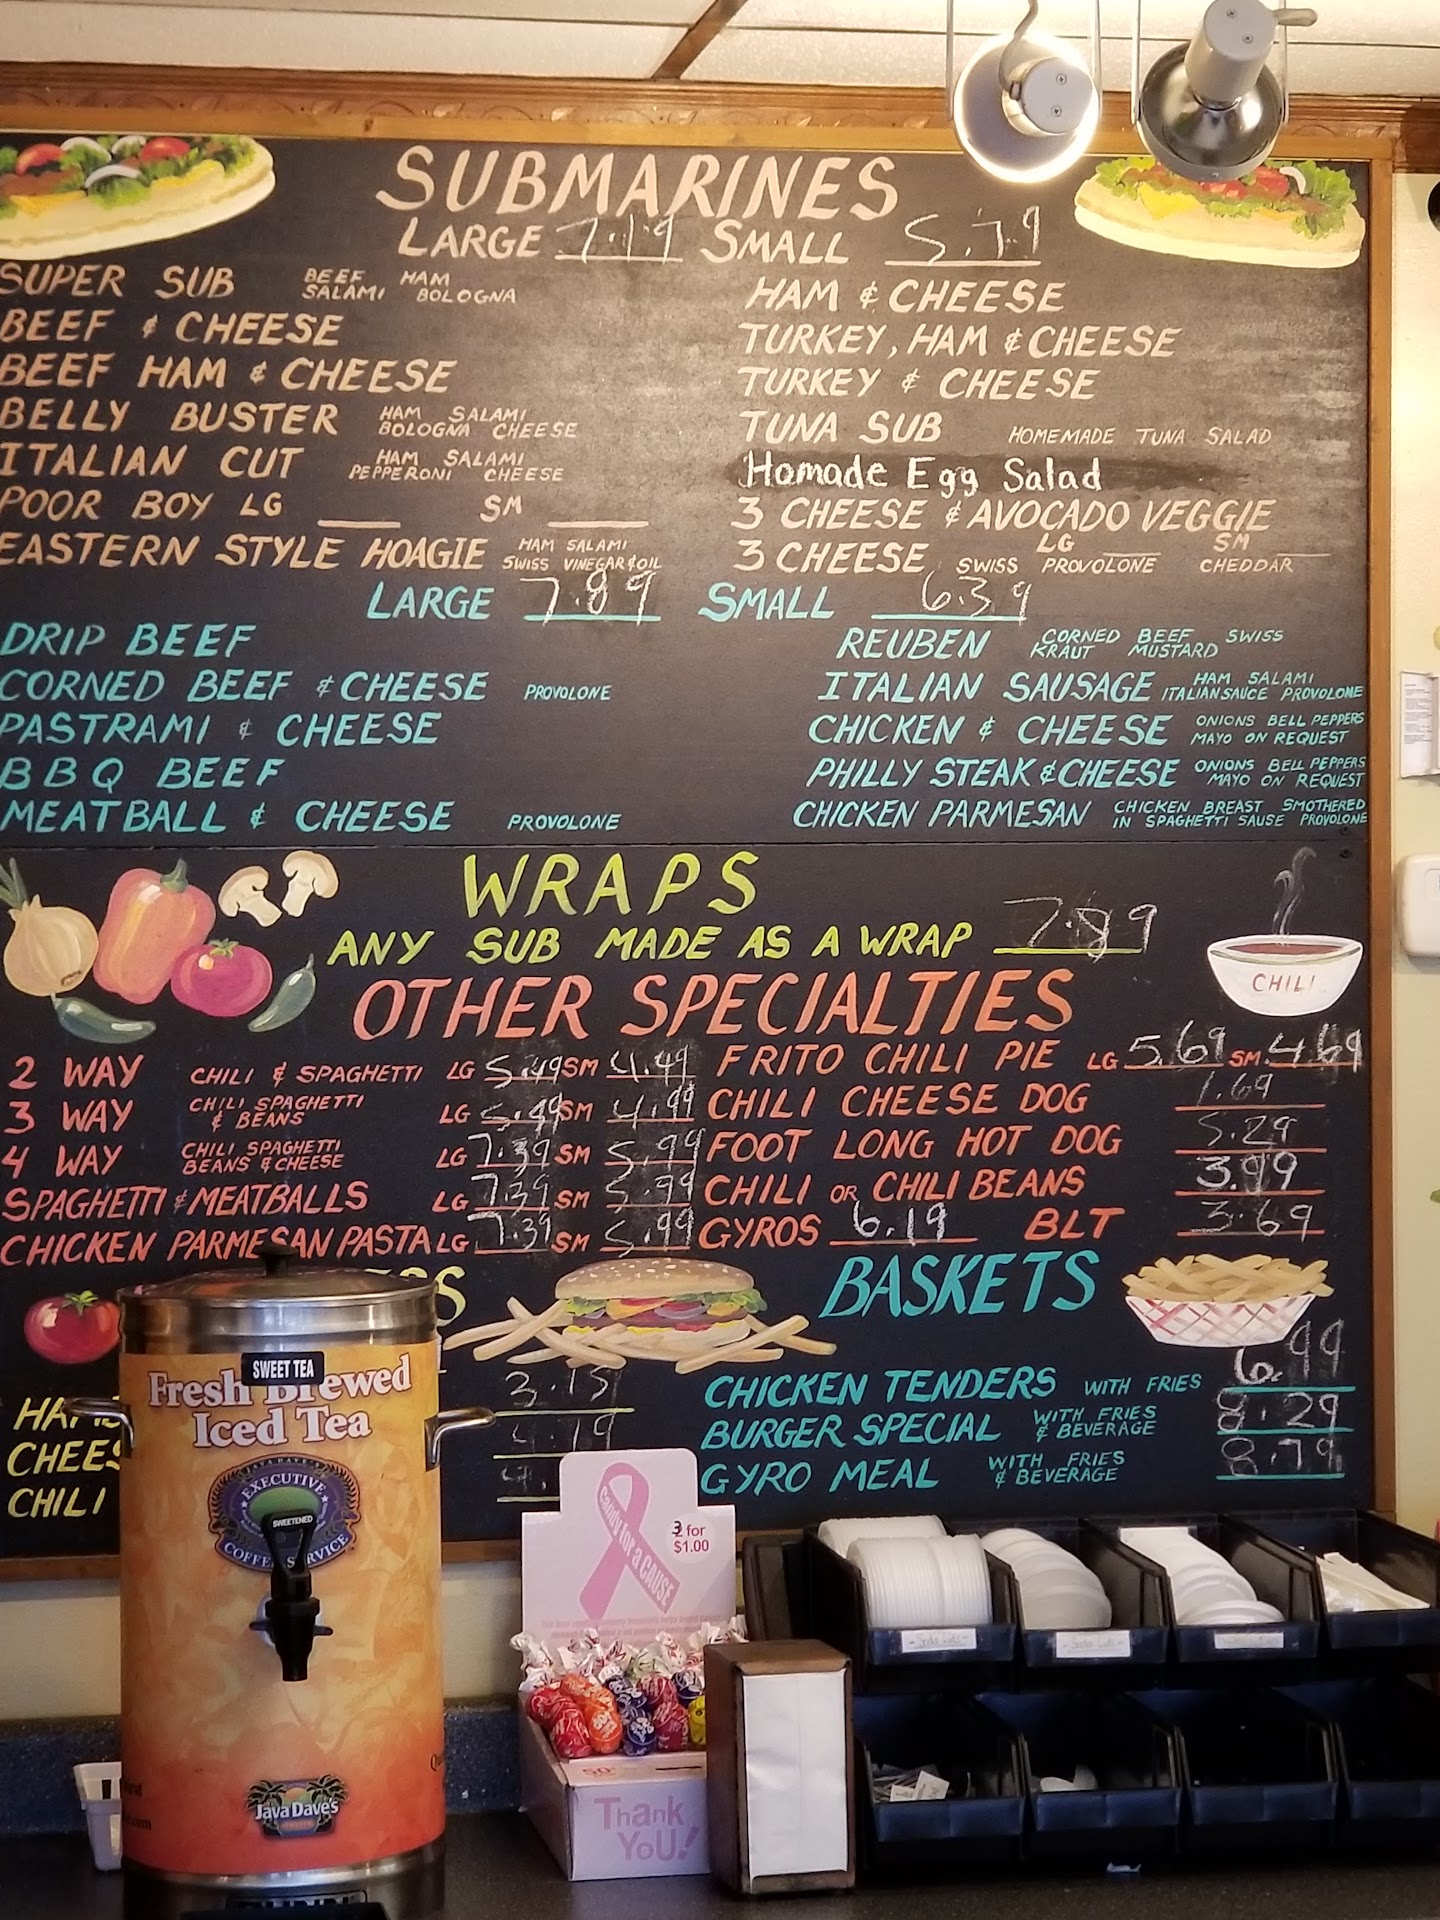 SUBMARINES
LARGE 7.19 SMALL 5.79
SUPER SUB BEEF HAM SALAMI BOLOGNA
BEEF & CHEESE
BEEF HAM & CHEESE
BELLY BUSTER HAM SALAMI BOLOGNA CHEESE
ITALIAN CUT HAM SALAMI PEPPERONI CHEESE
POOR BOY LG SM
EASTERN STYLE HOAGIE HAM SALAMI SWISS VINEGAR & OIL
HAM & CHEESE
TURKEY, HAM & CHEESE
TURKEY & CHEESE
TUNA SUB HOMEMADE TUNA SALAD
Homade Egg Salad
3 CHEESE & AVOCADO VEGGIE
LG SM
3 CHEESE SWISS PROVOLONE CHEDDAR
LARGE 7.89 SMALL 6.39
DRIP BEEF
CORNED BEEF & CHEESE PROVOLONE
PASTRAMI & CHEESE
BBQ BEEF
MEATBALL & CHEESE PROVOLONE
REUBEN CORNED BEEF SWISS KRAUT MUSTARD
ITALIAN SAUSAGE HAM SALAMI ITALIAN SAUCE PROVOLONE
CHICKEN & CHEESE ONIONS BELL PEPPERS MAYO ON REQUEST
PHILLY STEAK & CHEESE ONIONS BELL PEPPERS MAYO ON REQUEST
CHICKEN PARMESAN CHICKEN BREAST SMOTHERED IN SPAGHETTI SAUSE PROVOLONE
WRAPS
ANY SUB MADE AS A WRAP 7.89
CHILI
OTHER SPECIALTIES
2 WAY CHILI & SPAGHETTI LG 5.49 SM 4.49
3 WAY CHILI SPAGHETTI & BEANS LG 5.99 SM 4.99
4 WAY CHILI SPAGHETTI BEANS & CHEESE LG 7.39 SM 5.99
SPAGHETTI & MEATBALLS LG 7.39 SM 5.99
CHICKEN PARMESAN PASTA LG 7.39 SM 5.99
FRITO CHILI PIE LG 5.69 SM 4.69
CHILI CHEESE DOG 1.69
FOOT LONG HOT DOG 5.29
CHILI OR CHILI BEANS 3.99
GYROS 6.19 BLT 3.69
3.15
4.19
CHILI
BASKETS
CHICKEN TENDERS WITH FRIES 6.99
BURGER SPECIAL WITH FRIES & BEVERAGE 8.29
GYRO MEAL WITH FRIES & BEVERAGE 8.79
SWEET TEA
Fresh Brewed
Iced Tea
EXECUTIVE
SWEETENED
COFFEE SERVICE
Java Dave's
Candy for a CAUSE
3 for
$1.00
Thank
YoU!